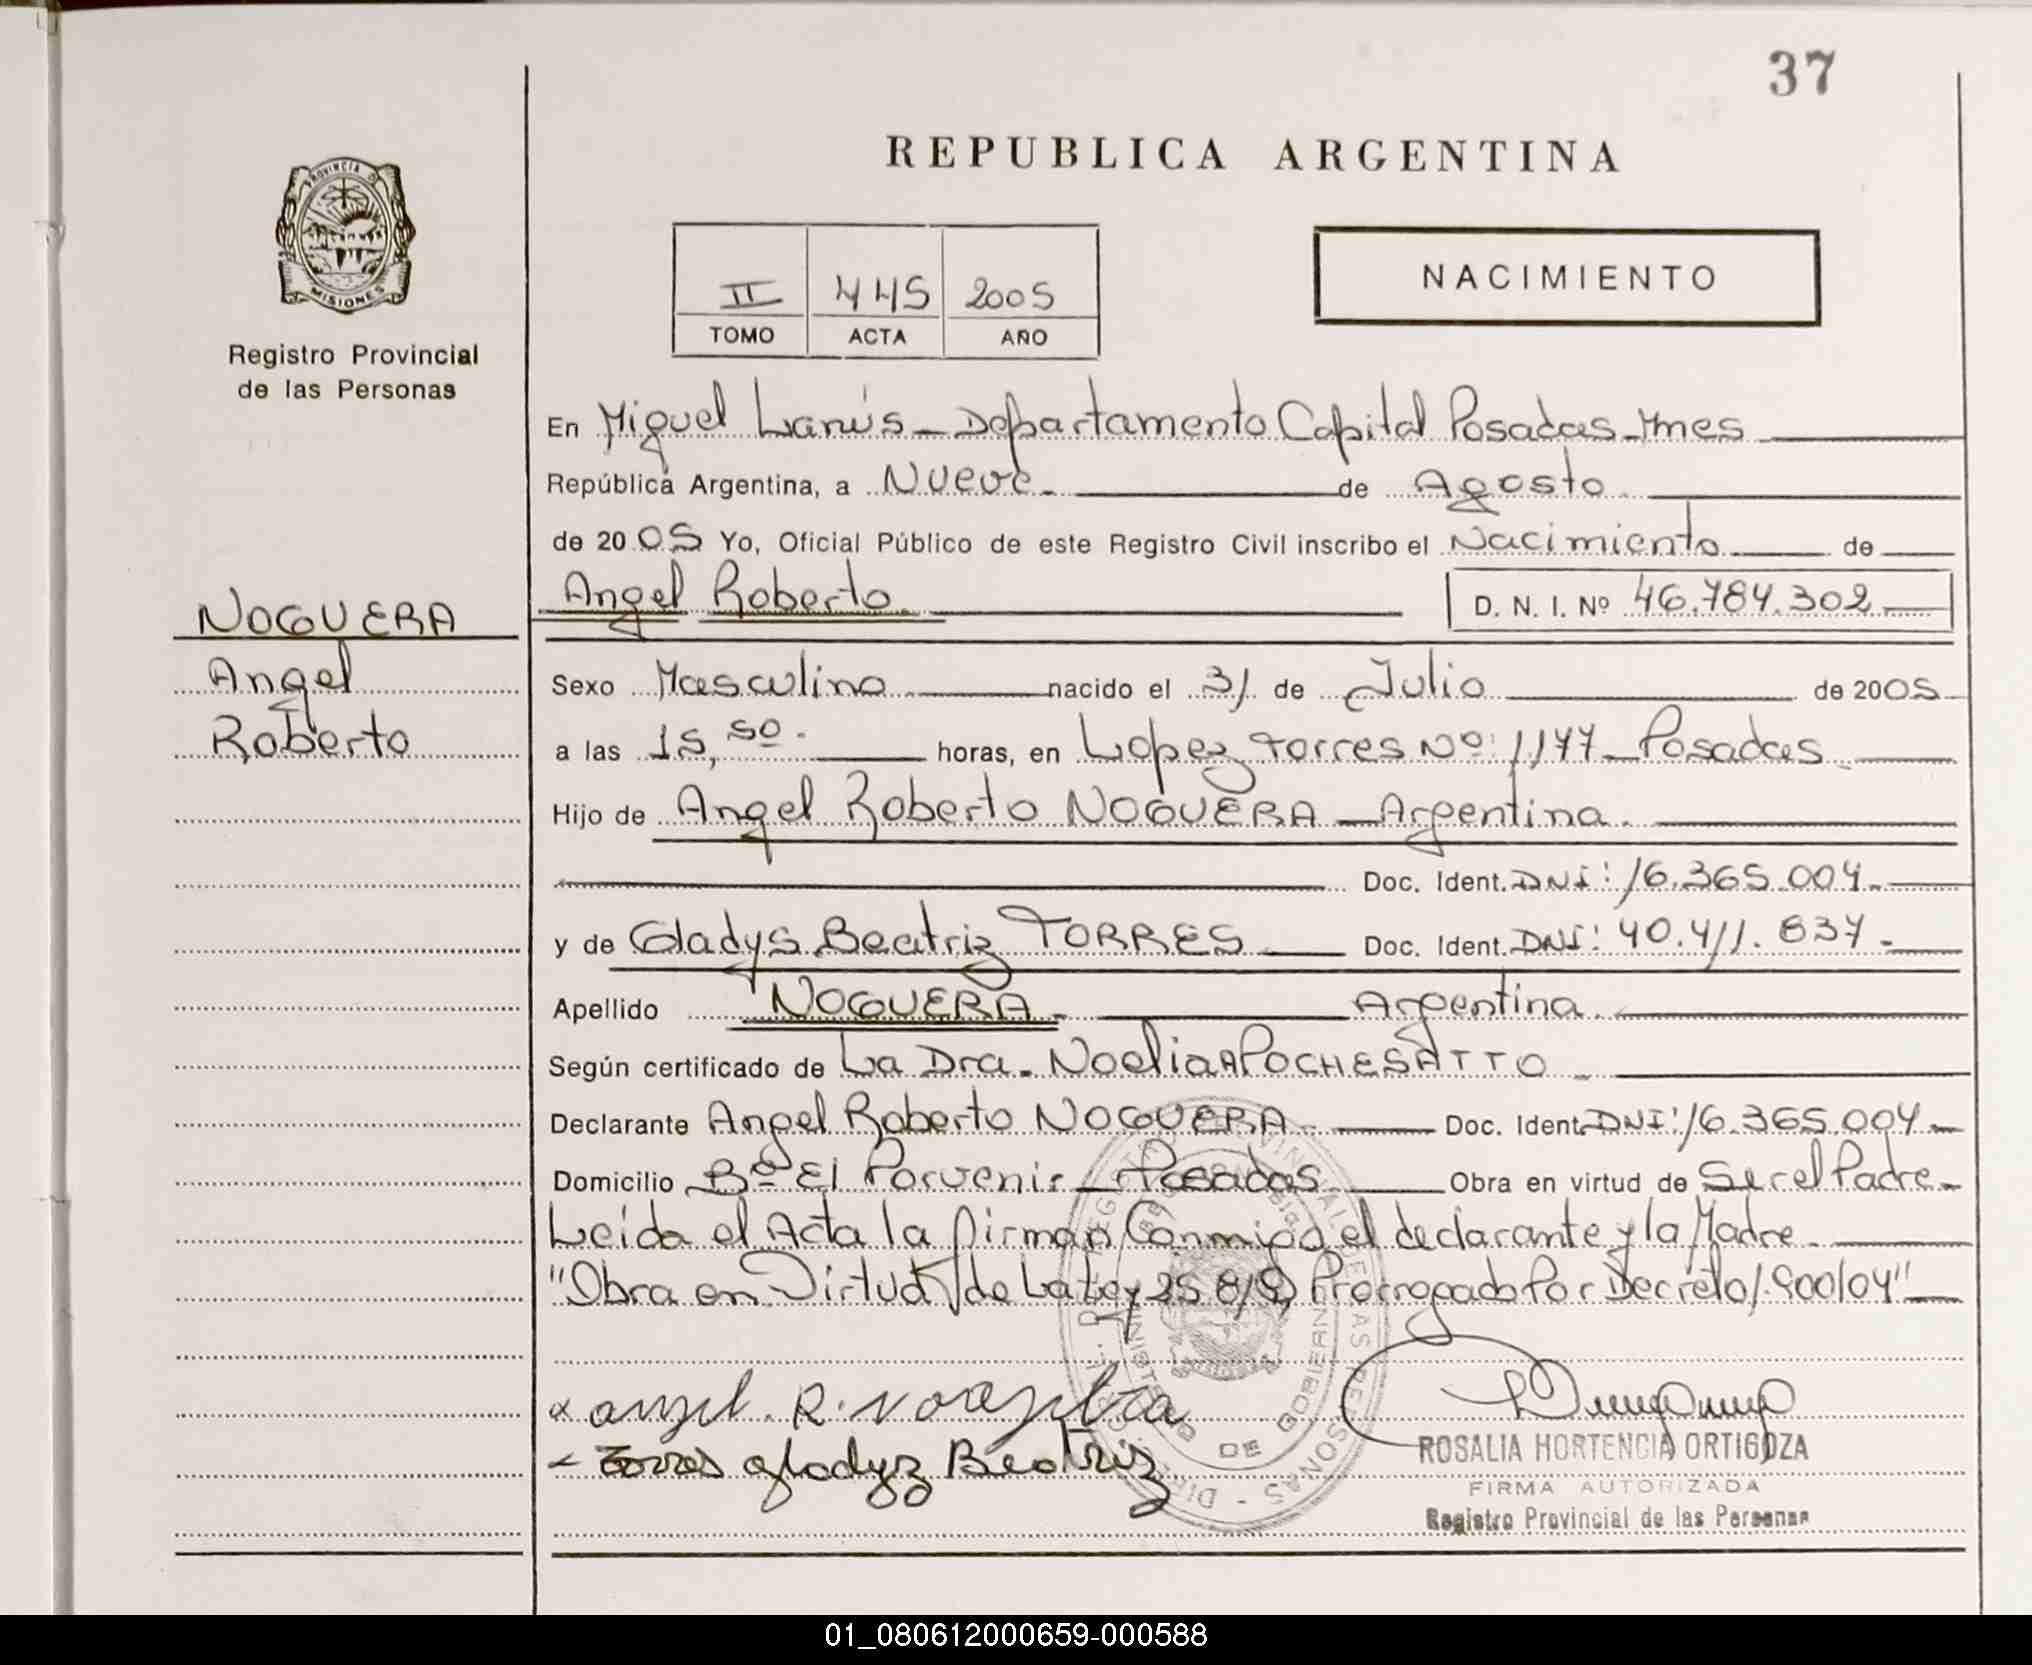 37
REPUBLICA ARGENTINA
PROVINCIA D
MISIONES
Registro Provincial
de las Personas
II 445 2005
TOMO ACTA AÑO
NACIMIENTO
En Miguel Lanús - Departamento Capital Posadas - Mnes
República Argentina, a Nueve - de Agosto
de 2005 Yo, Oficial Público de este Registro Civil inscribo el Nacimiento de
Angel Roberto. D. N. I. Nº 46.784.302
NOGUERA
Angel
Roberto
Sexo Masculino nacido el 31 de Julio de 2005
a las 15,50 - horas, en Lopez Torres Nº: 1.177 - Posadas
Hijo de Angel Roberto NOGUERA - Argentina.
Doc. Ident. DNI: 16.365.004.-
y de Gladys Beatriz TORRES Doc. Ident. DNI: 40.411.837.-
Apellido NOGUERA. Argentina.
Según certificado de La Dra. Noelia A POCHESATTO -
Declarante Angel Roberto NOGUERA. Doc. Ident. DNI: 16.365.004.-
Domicilio Bº El Porvenir - Posadas Obra en virtud de Ser el Padre.-
Leida el Acta la firman Conmigo el declarante y la Madre
"Obra en Virtud de La Ley 25.819, Prorrogado Por Decreto 1.900/04"
x angel. R. noaguera
- Torres gladyz Beatriz
ROSALIA HORTENCIA ORTIGOZA
FIRMA AUTORIZADA
Registro Provincial de las Personas
01_080612000659-000588